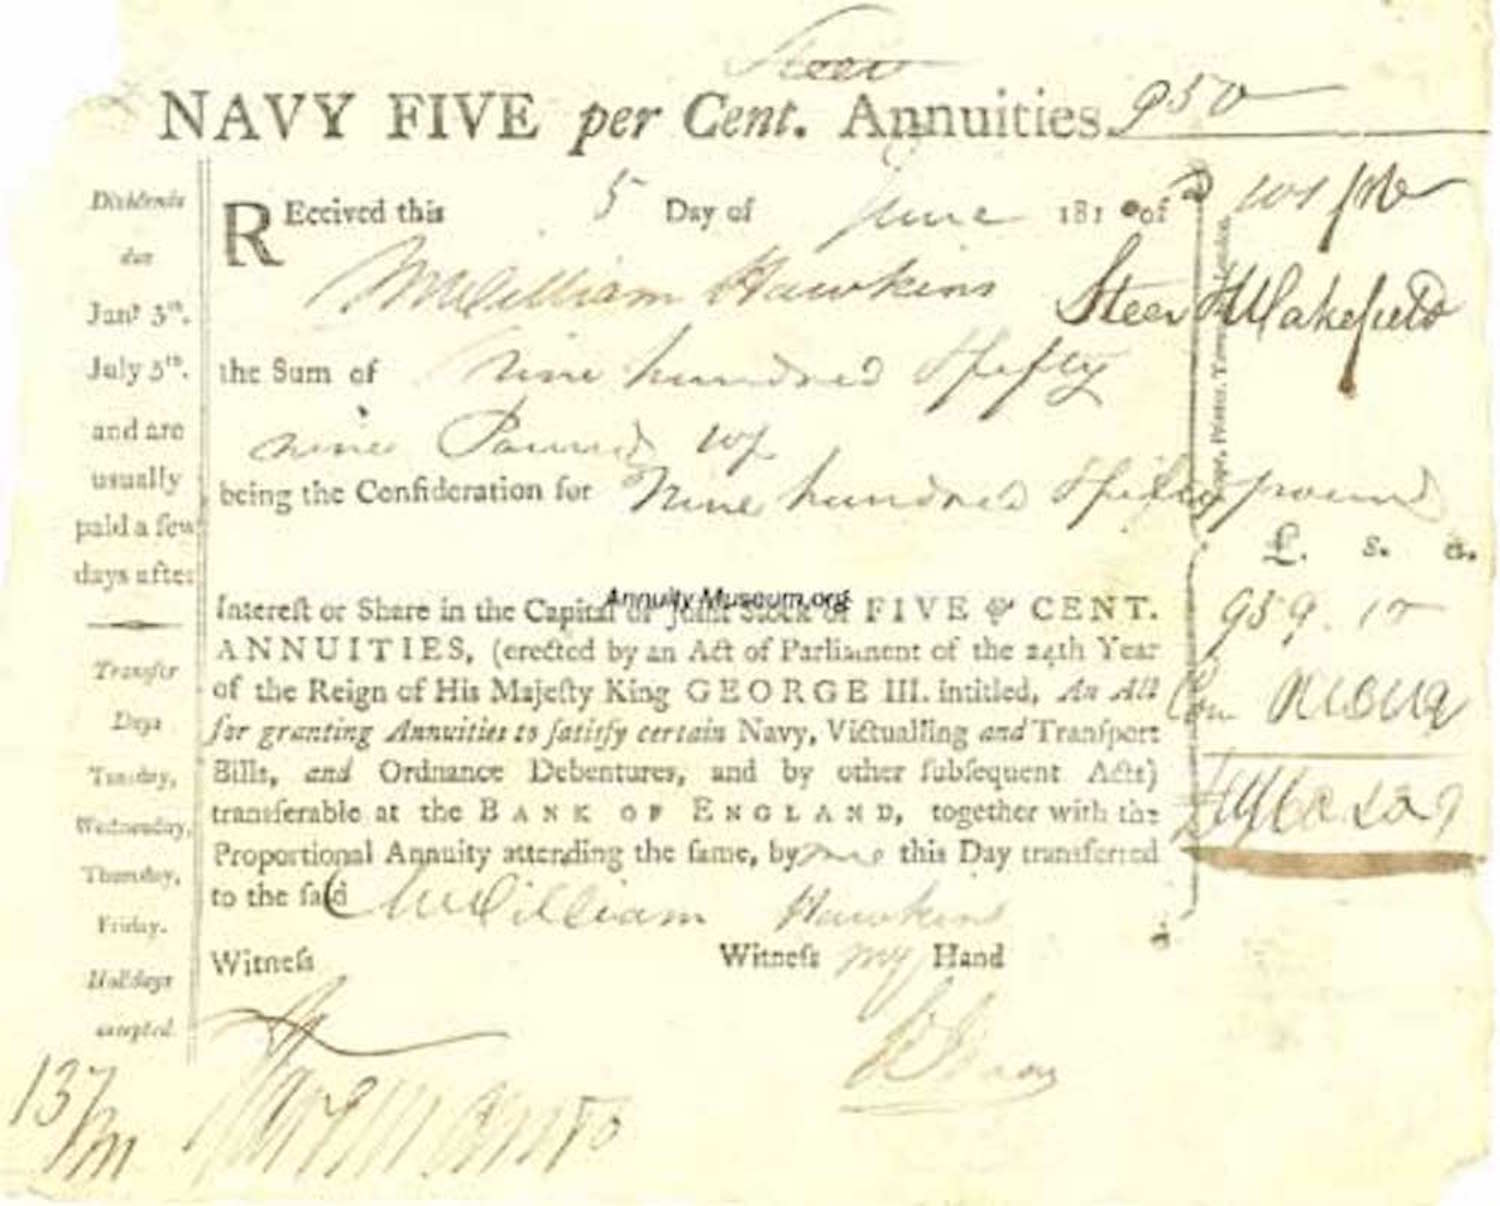 Steer
NAVY FIVE per Cent. Annuities. 950
Dividends
due
Janʸ 5th.
July 5th.
and are
usually
paid a few
days after
Transfer
Days
Tuesday,
Wednesday,
Thursday,
Friday.
Holidays
excepted
REceived this 5 Day of June 181 of
Mr William Hawkins
the Sum of Nine hundred & fifty
nine Pound
being the Consideration for Nine hundred & fifty pound
Intereſt or Share in the Capital or Joint Stock of FIVE ⅌ CENT.
ANNUITIES, (erected by an Act of Parliament of the 24th Year
of the Reign of His Majeſty King GEORGE III. intitled, An Act
for granting Annuities to ſatisfy certain Navy, Victualling and Tranſport
Bills, and Ordnance Debentures, and by other ſubſequent Acts)
transferable at the BANK OF ENGLAND, together with the
Proportional Annuity attending the ſame, by me this Day transferred
to the ſaid Mr William Hawkins
Witneſs
Witneſs my Hand
Steer
Wakefield
Printer, London.
£. s. d.
959. 10
137
Annuity Museum.org